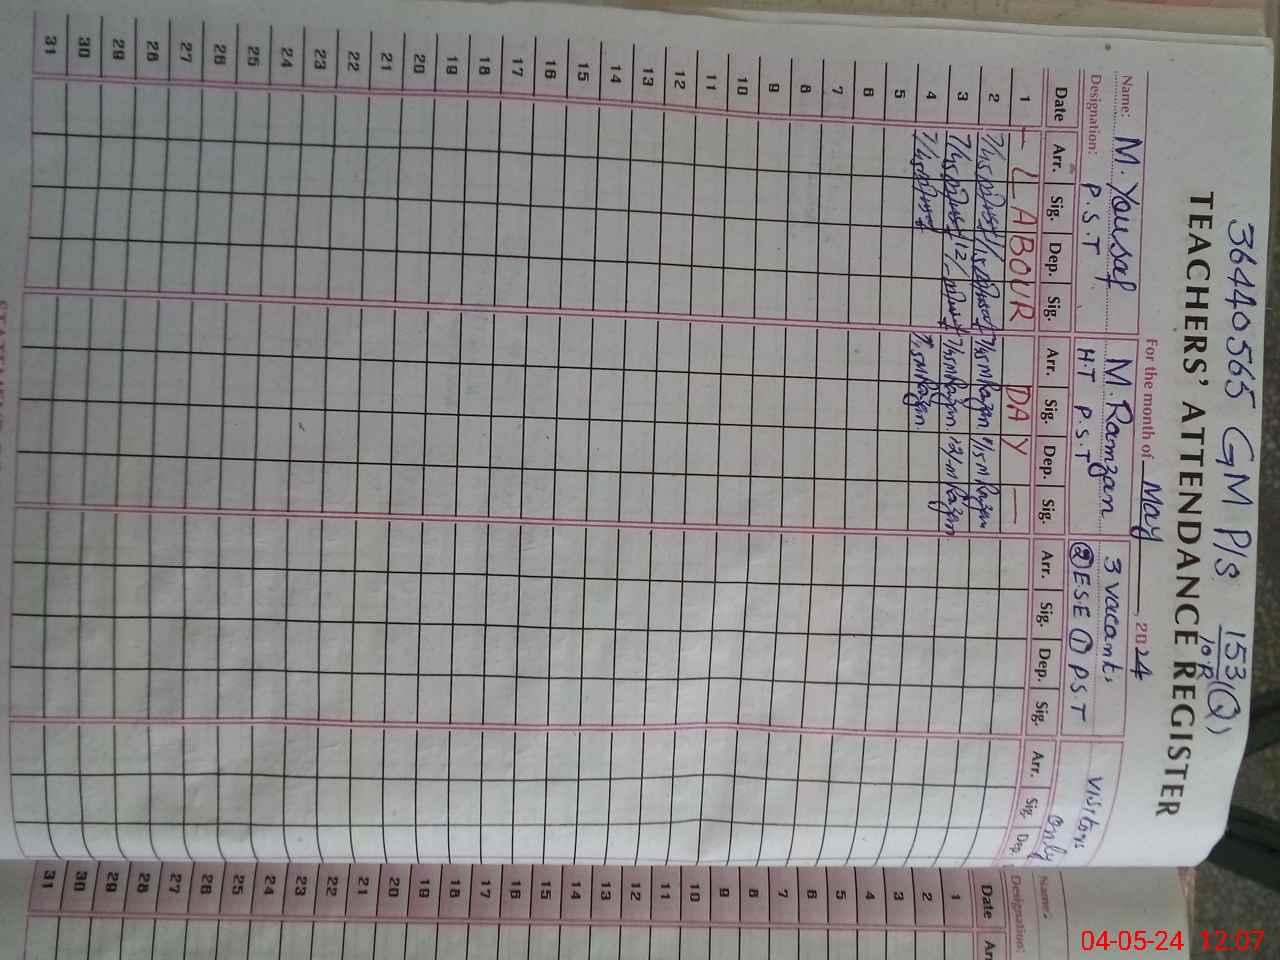 36440565 GM P/S 153(Q)
10.R
TEACHERS' ATTENDANCE REGISTER
For the month of May, 2024
Name: M. Yousaf M. Ramzan 3 vacant. Visitors only
Designation: P.S.T H.T P.S.T ② ESE ① P.S.T
Date Arr. Sig. Dep. Sig. Arr. Sig. Dep. Sig. Arr. Sig. Dep. Sig. Arr. Sig. Dep.
1 LABOUR DAY
2 7/45 1/15 7/45 M Razan 1/15 M Razan
3 7/45 12/- 7/45 M Razan 12/- M Razan
4 7/45 7/45 M Razan
5
6
7
8
9
10
11
12
13
14
15
16
17
18
19
20
21
22
23
24
25
26
27
28
29
30
31
Name:
Designation:
Date
1
2
3
4
5
6
7
8
9
10
11
12
13
14
15
16
17
18
19
20
21
22
23
24
25
26
27
28
29
30
31
04-05-24 12:07